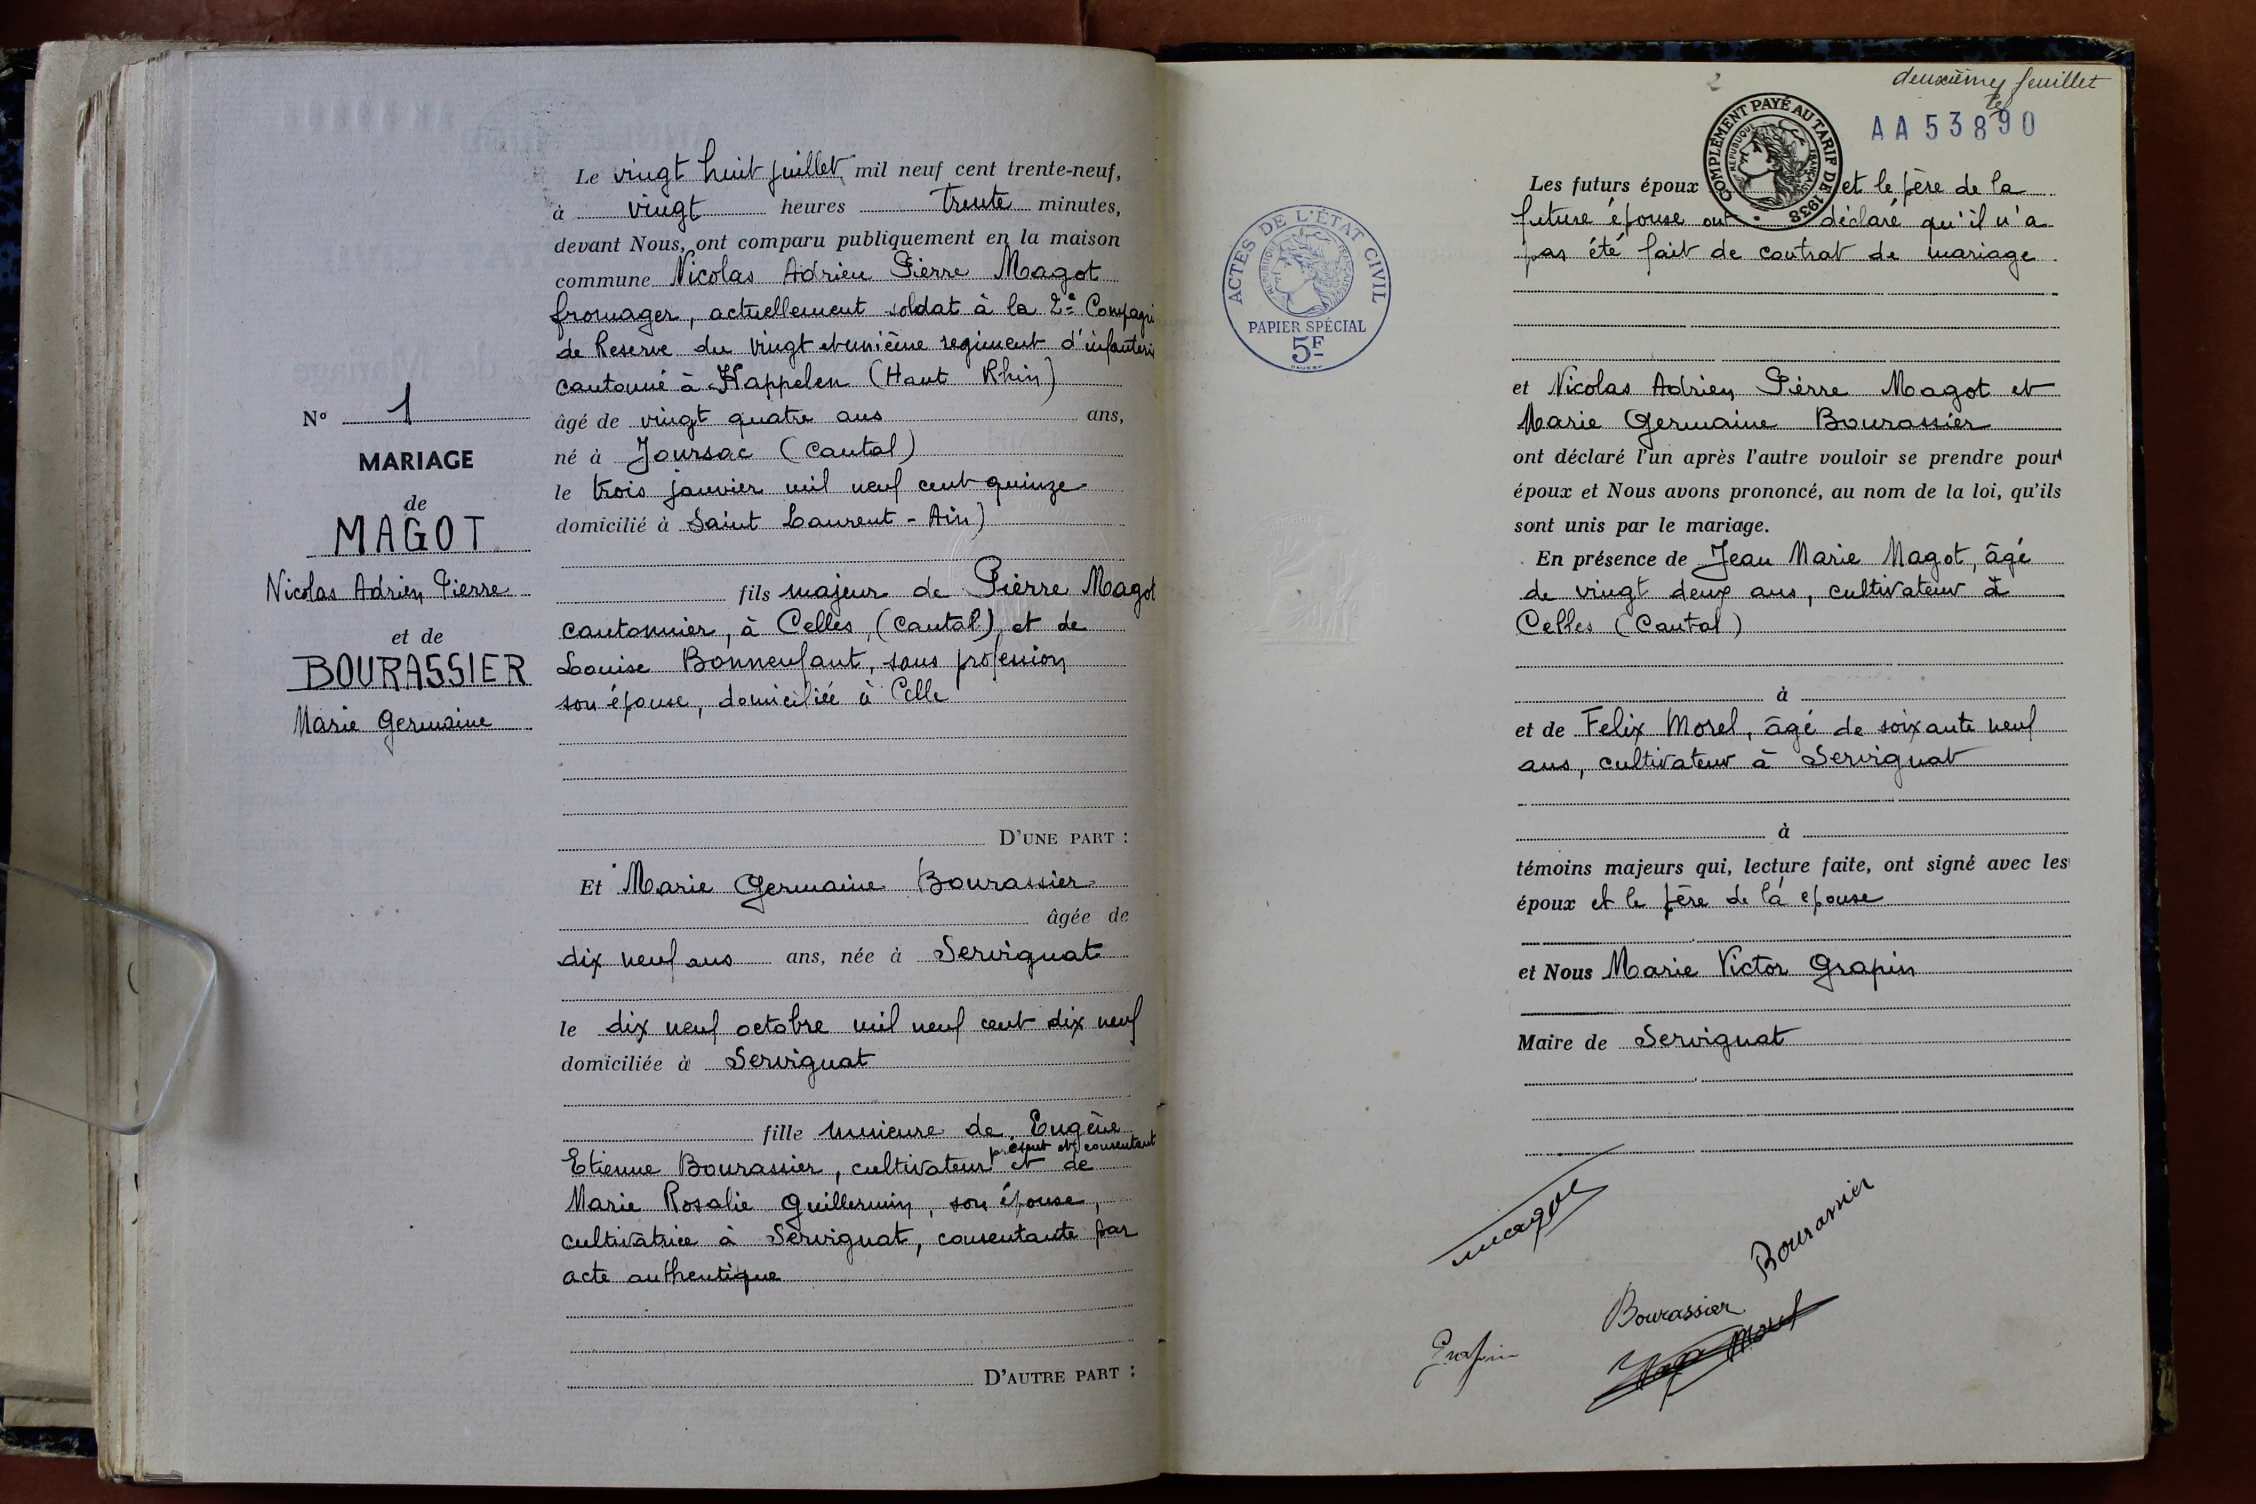 Le vingt huit juillet mil neuf cent trente-neuf,
à vingt heures trente minutes,
devant Nous, ont comparu publiquement en la maison
commune Nicolas Adrien Pierre Magot
fromager, actuellement soldat à la 2e Compagni
de Reserve du vingt et unième regiment d'infanteri
cantonné à Happelen (Haut Rhin)
âgé de vingt quatre ans ans,
né à Joursac (Cantal)
le trois janvier mil neuf cent quinze
domicilié à Saint Laurent - Ain)
fils majeur de Pierre Magot
cantonnier, à Celles, (Cantal), et de
Louise Bonnenfant, sans profession
son épouse, domiciliée à Celle
D'UNE PART :
Et Marie Germaine Bourassier
âgée de
dix neuf ans ans, née à Servignat
le dix neuf octobre mil neuf cent dix neuf
domiciliée à Servignat
fille mineure de Eugène
présent et consentant
Etienne Bourassier, cultivateur et de
Marie Rosalie Guillermin, son épouse,
cultivatrice à Servignat, consentante par
acte authentique
D'AUTRE PART :
No 1
MARIAGE
de
MAGOT
Nicolas Adrien Pierre
et de
BOURASSIER
Marie Germaine
deuxième feuillet
AA 53890
COMPLÉMENT PAYÉ AU TARIF DE 1938
RÉPUBLIQUE FRANÇAISE
ACTES DE L'ÉTAT CIVIL
RÉPUBLIQUE FRANÇAISE
PAPIER SPÉCIAL
5F
Les futurs époux et le père de la
future épouse ont déclaré qu'il n'a
pas été fait de contrat de mariage.
et Nicolas Adrien Pierre Magot et
Marie Germaine Bourassier
ont déclaré l'un après l'autre vouloir se prendre pour
époux et Nous avons prononcé, au nom de la loi, qu'ils
sont unis par le mariage.
En présence de Jean Marie Magot, âgé
de vingt deux ans, cultivateur à
Celles (Cantal)
à
et de Felix Morel, âgé de soixante neuf
ans, cultivateur à Servignat
à
témoins majeurs qui, lecture faite, ont signé avec les
époux et le père de la epouse
et Nous Marie Victor Grapin
Maire de Servignat
Magot
Bourassier
Bourassier
Grapin
Morel